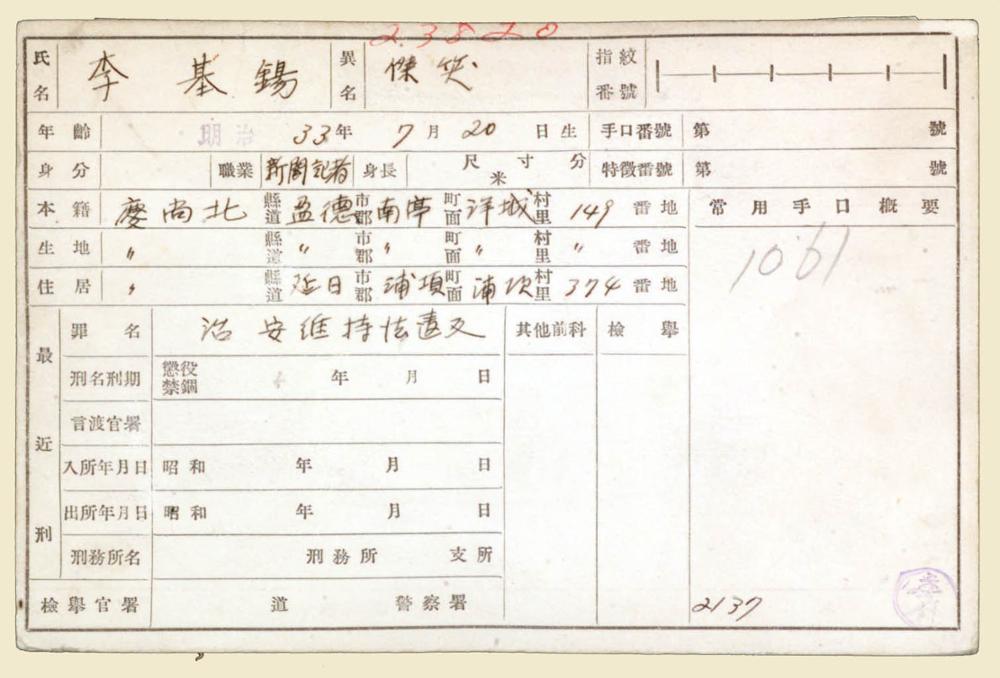 23820
氏名 李基錫 異名 傑笑 指紋番號
年齡 明治 33年 7月 20日生 手口番號 第 號
身分 職業 新聞記者 身長 尺寸分 米 特徵番號 第 號
本籍 慶尚北 縣道 盈德 市郡 南亭 町面 洋城 村里 149 番地 常用手口概要
生地 〃 縣道 〃 市郡 〃 町面 〃 村里 〃 番地 1061
住居 〃 縣道 延日 市郡 浦項 町面 浦項 村里 374 番地
最近刑
罪名 治安維持法違反 其他前科 檢擧
刑名刑期 懲役 禁錮 年 月 日
言渡官署
入所年月日 昭和 年 月 日
出所年月日 昭和 年 月 日
刑務所名 刑務所 支所
檢擧官署 道 警察署 2137